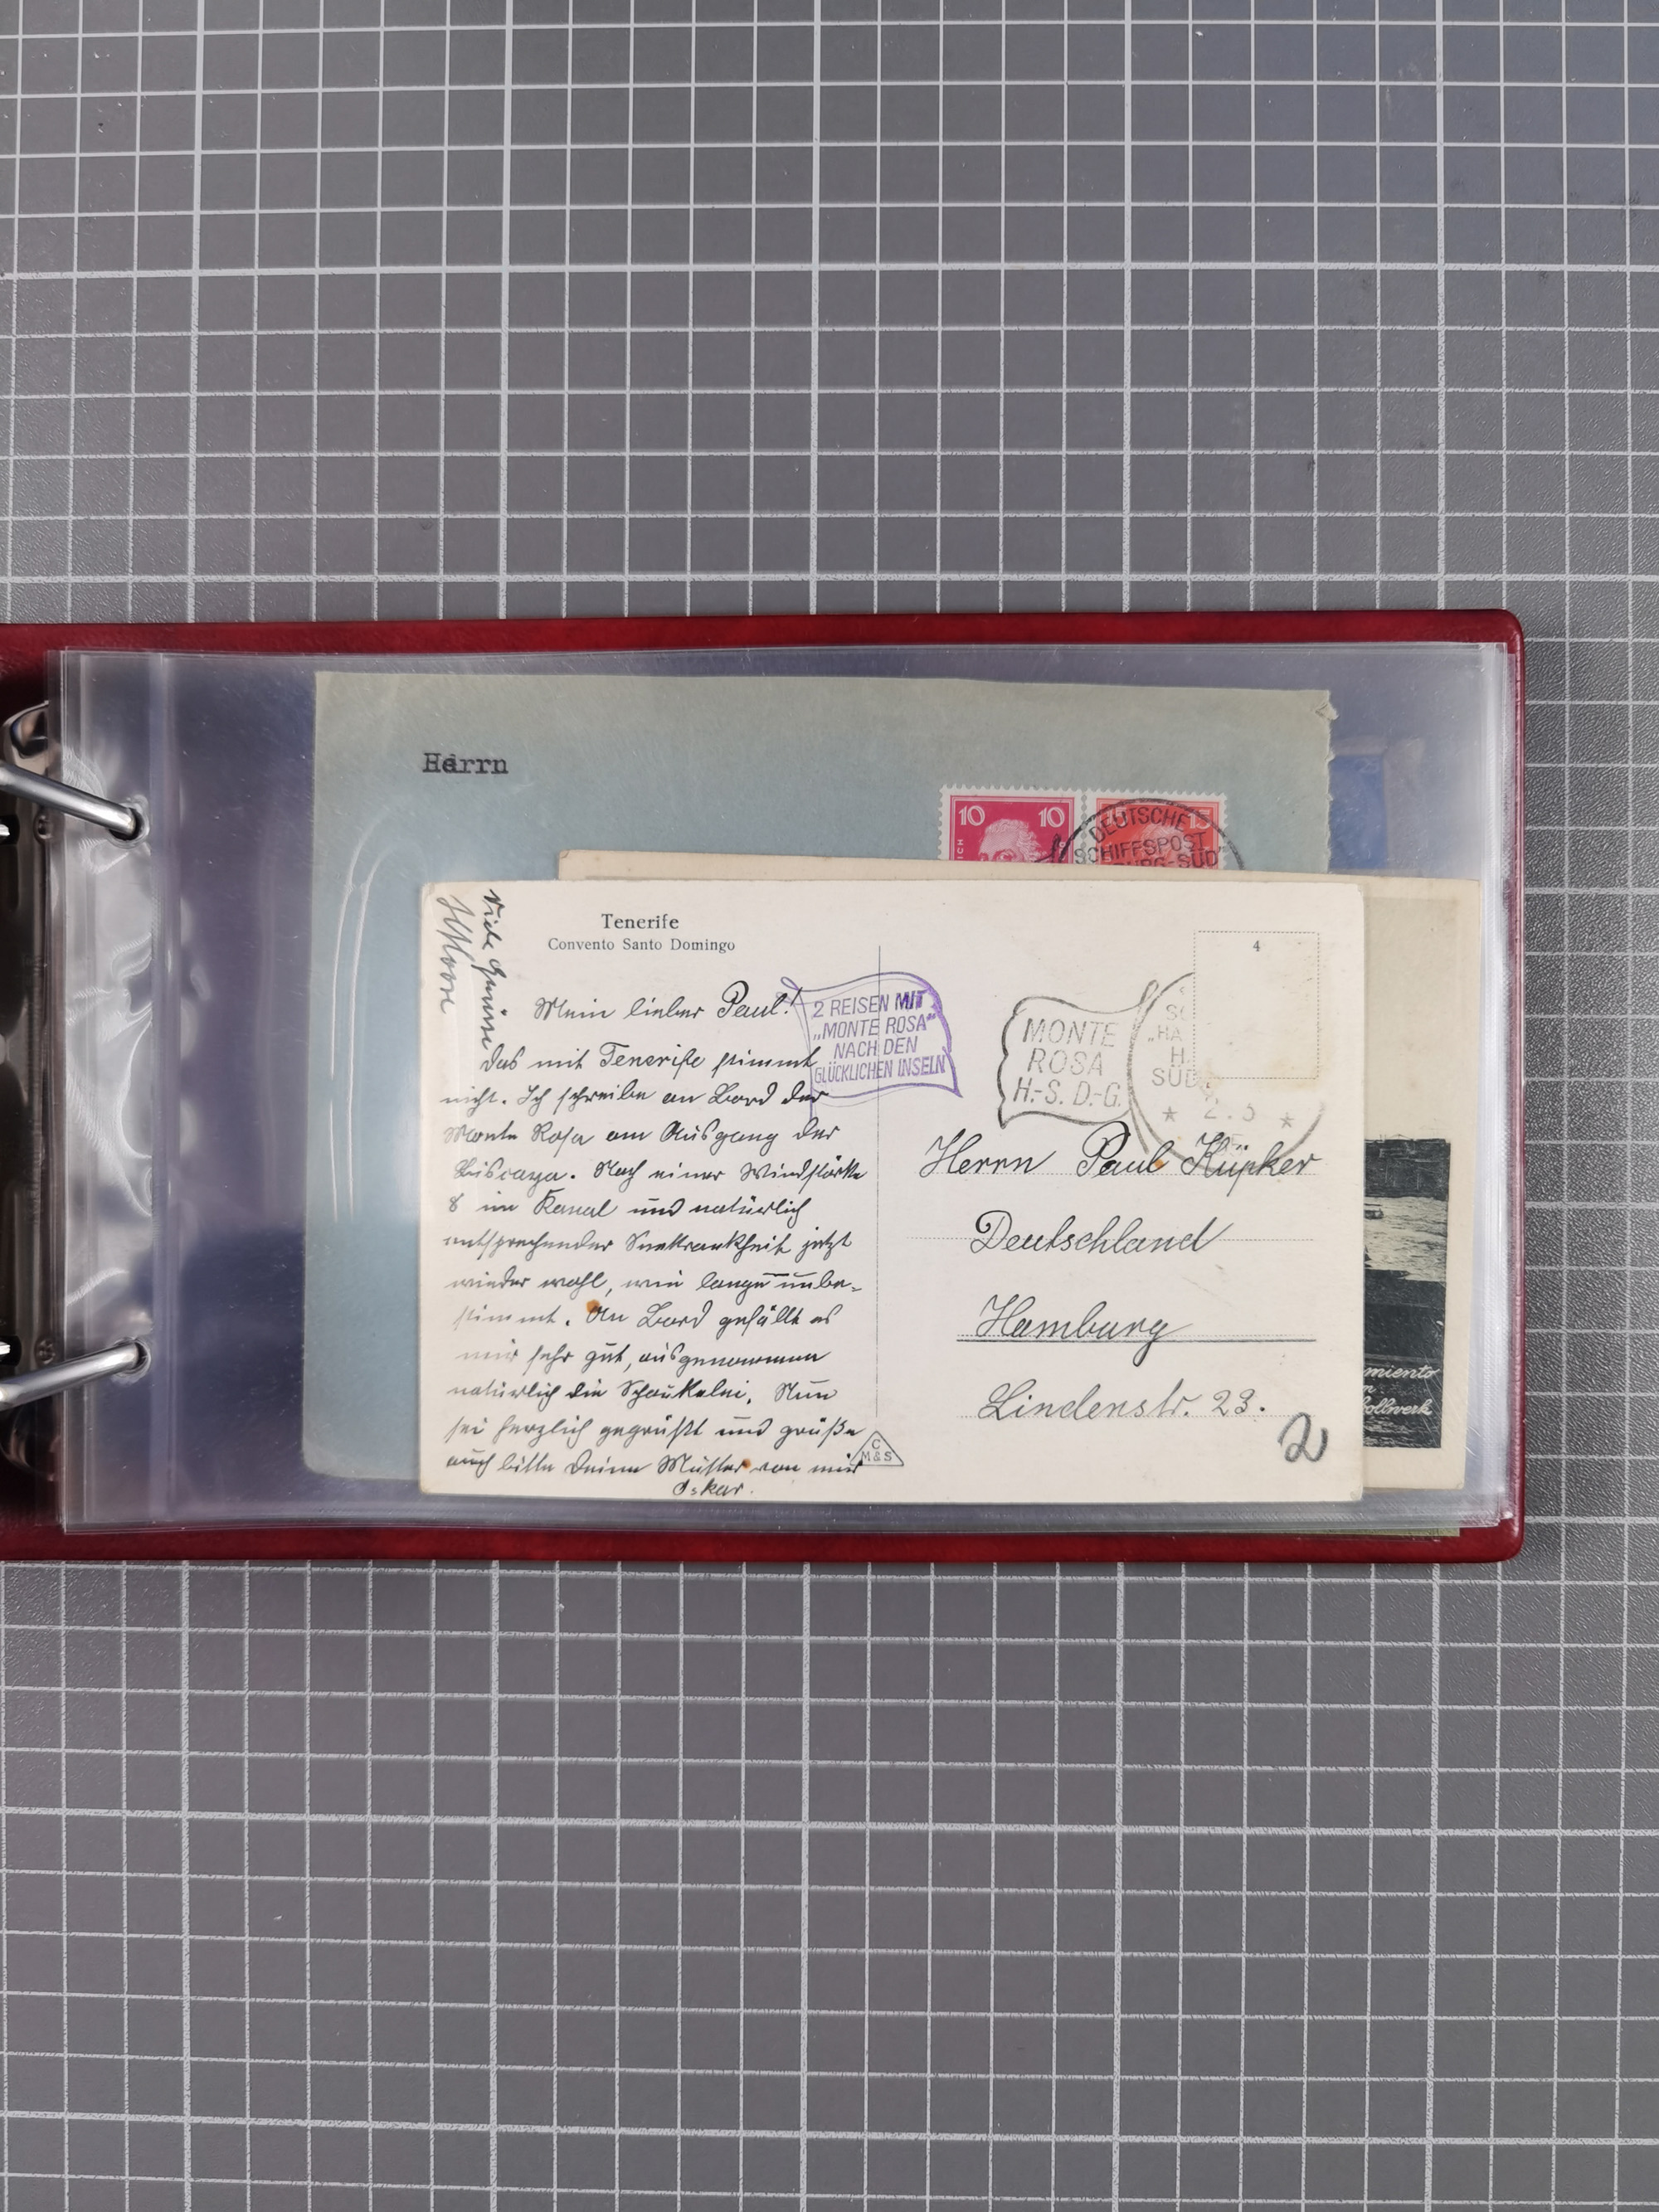 Herrn
10 10
15
DEUTSCHE
SCHIFFSPOST
Tenerife
Convento Santo Domingo
4
Viele Grüsse
Mein lieber Paul!
das mit Tenerife stimmt
nicht. Ich schreibe an Bord der
Monte Rosa am Ausgang der
Biscaya. Nach einer Windstärke
8 im Kanal und natürlich
entsprechender Seekrankheit jetzt
wieder wohl, wie lange unbe-
stimmt. An Bord gefällt es
mir sehr gut, ausgenommen
natürlich die Schaukelei. Nun
sei herzlich gegrüßt und grüße
auch bitte Deine Mutter von mir
Oskar.
2 REISEN MIT
„MONTE ROSA"
NACH DEN
GLÜCKLICHEN INSELN
MONTE
ROSA
H.-S. D.-G.
„HA
H.
SÜD
* 2.5 *
Herrn Paul Küpker
Deutschland
Hamburg
Lindenstr. 23.
2
C
M&S
miento
ollwerk